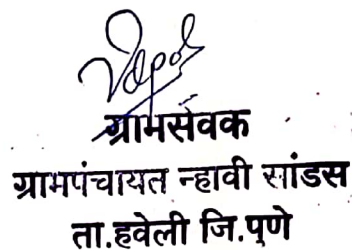 ग्रामसेवक
ग्रामपंचायत न्हावी सांडस
ता.हवेली जि.पुणे